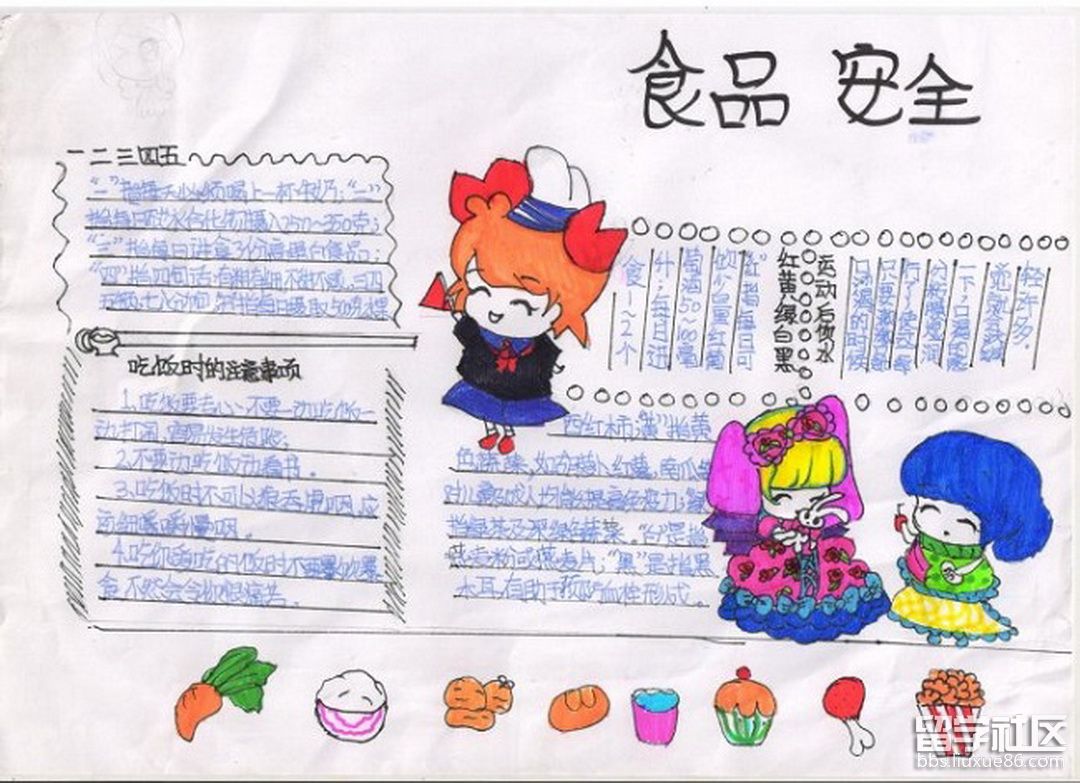 食品 安全
一二三四五
"一"指每天必须喝上一杯牛奶;"二"
指每日碳水合化物摄入250~350克;
"三"指每日进食3份高蛋白食品;
"四"指四句话:有粗有细不甜不咸,三四
五顿七八分饱
指每日摄取500
吃饭时的注意事项
1.吃饭要专心,不要一动吃饭一
动打闹,容易发生危险;
2.不要动吃饭动看书。
3.吃饭时不可以狼吞虎咽,应
细嚼慢咽。
4.吃你喜吃的饭时不要暴饮暴
食,不然会令你很痛苦。
运动后饮水
只要
的时候
行了
一下,口
觉就会
轻许多.
红黄绿白黑
"红"指每日可
饮少量红葡
萄酒50~100毫
升;每日进
食1~2个
西红柿"黄"指黄
色蔬菜,如胡萝卜红薯,南瓜
对儿童及成人均能提高免疫力;绿
指绿茶及深绿蔬菜。"白"是指
燕麦粉或燕麦片;"黑"是指黑
木耳,有助于预防血栓形成。
留学社区
bbs.liuxue86.com